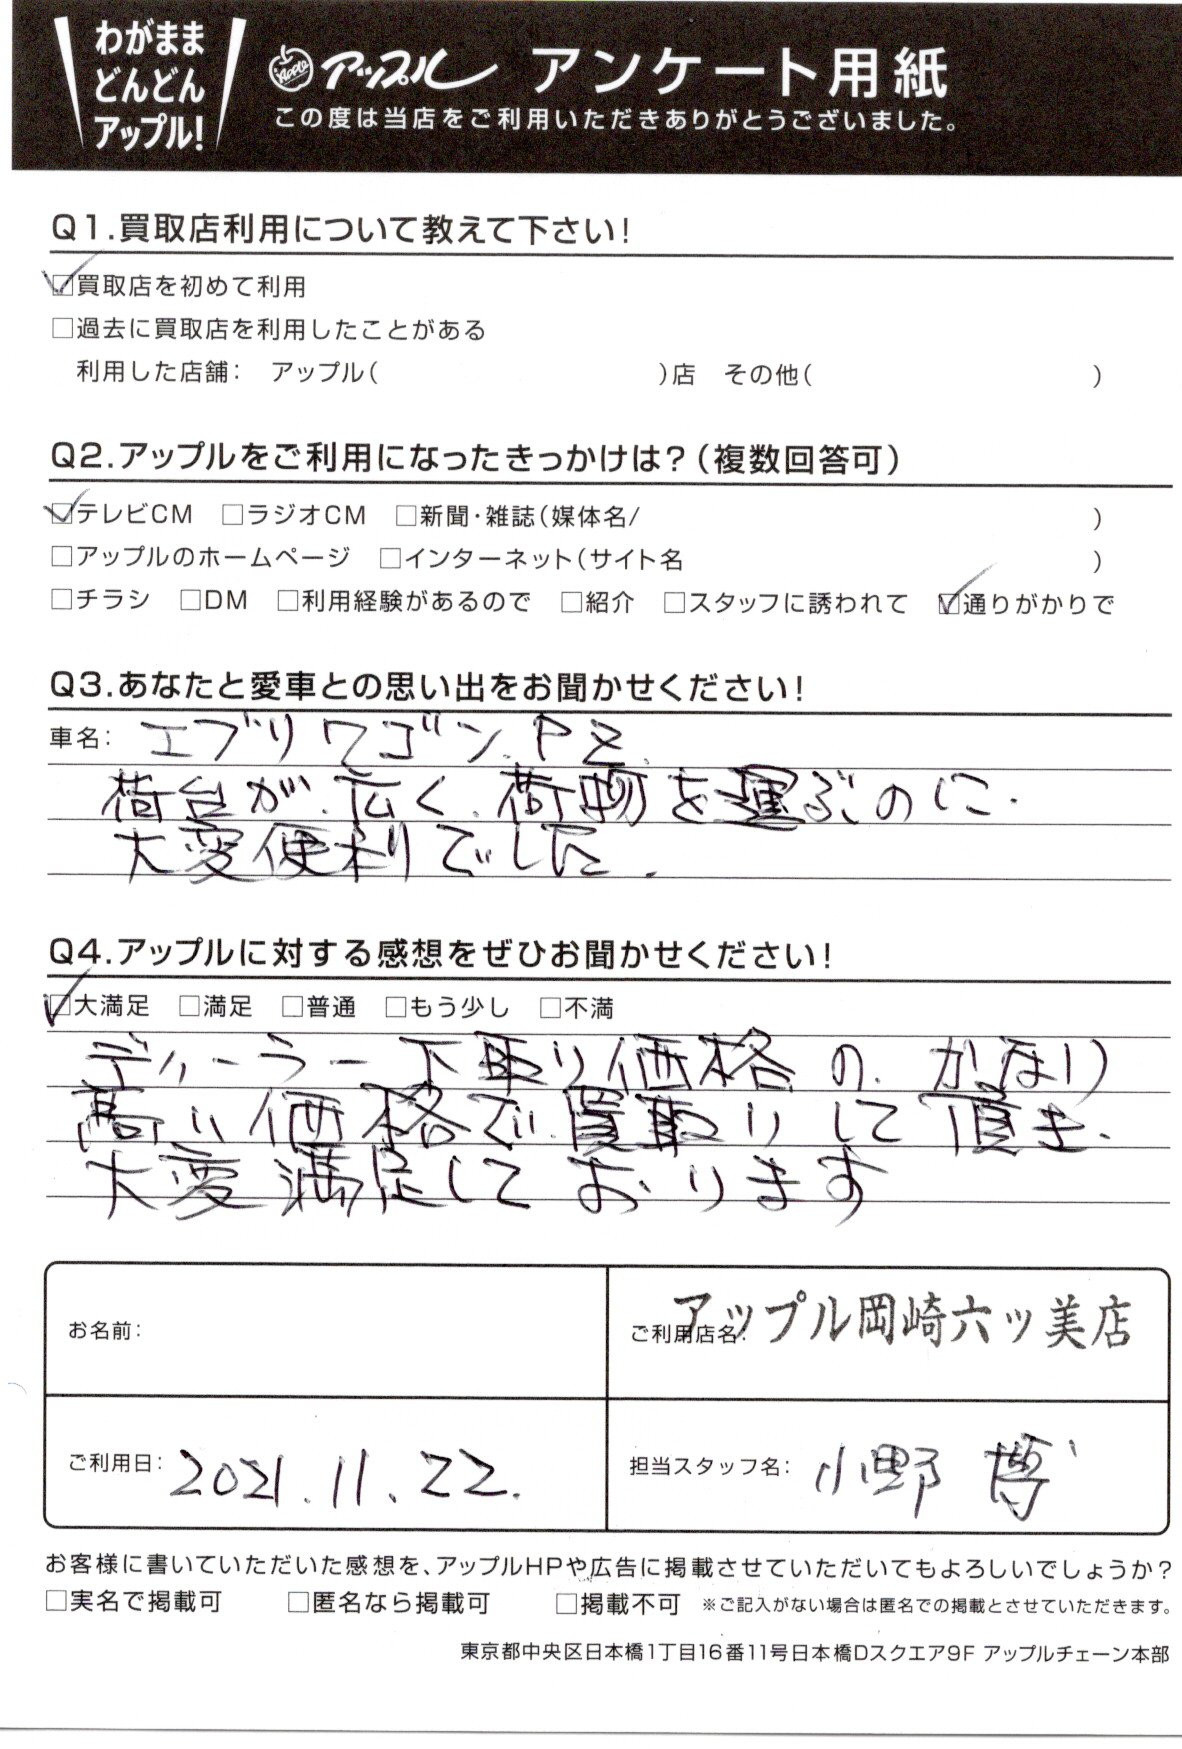 わがまま
どんどん
アップル!
Apple アップル アンケート用紙
この度は当店をご利用いただきありがとうございました。
Q1.買取店利用について教えて下さい!
☑買取店を初めて利用
□過去に買取店を利用したことがある
利用した店舗: アップル( )店 その他( )
Q2.アップルをご利用になったきっかけは?(複数回答可)
☑テレビCM □ラジオCM □新聞・雑誌(媒体名/ )
□アップルのホームページ □インターネット(サイト名 )
□チラシ □DM □利用経験があるので □紹介 □スタッフに誘われて ☑通りがかりで
Q3.あなたと愛車との思い出をお聞かせください!
車名: エブリワゴン.PZ.
荷台が.広く.荷物を運ぶのに.
大変便利でした.
Q4.アップルに対する感想をぜひお聞かせください!
☑大満足 □満足 □普通 □もう少し □不満
ディーラー下取り価格の.かなり
高い価格で.買取りして頂き.
大変満足しております
お名前:
ご利用店名: アップル岡崎六ッ美店
ご利用日: 2021.11.22.
担当スタッフ名: 小野 博
お客様に書いていただいた感想を、アップルHPや広告に掲載させていただいてもよろしいでしょうか?
□実名で掲載可 □匿名なら掲載可 □掲載不可 ※ご記入がない場合は匿名での掲載とさせていただきます。
東京都中央区日本橋1丁目16番11号日本橋Dスクエア9F アップルチェーン本部